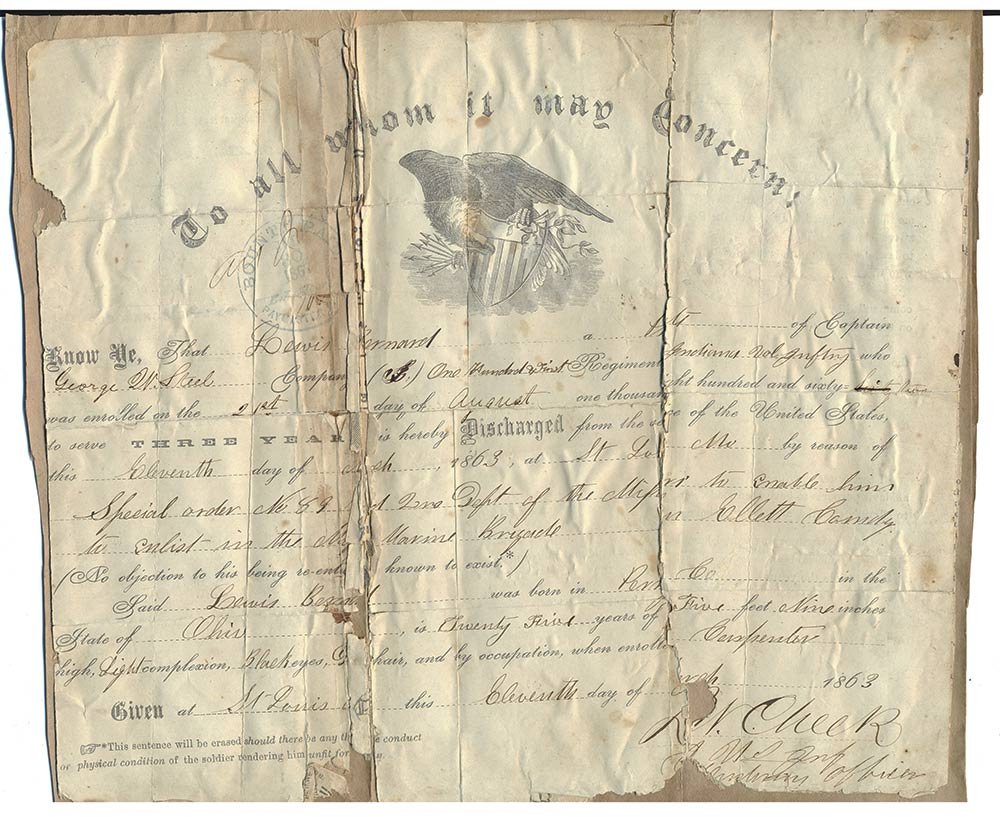 To all whom it may Concern:
BOUNTY PAID
Know Ye, That Lewis Bernard a of Captain
George W. Steel Company (B.) One Hundred & First Regiment Indiana Vol. Infty who
was enrolled on the 21st day of August one thousand eight hundred and sixty-
to serve THREE YEARS is hereby Discharged from the service of the United States,
this Eleventh day of March, 1863, at St Louis Mo by reason of
Special order No 89 Dept of the Missouri to enable him
to enlist in the Marine Brigade Ellett Comdg
(No objection to his being re-enlisted known to exist.*)
Said Lewis was born in Co in the
State of Ohio, is Twenty Five years of Five feet Nine inches
high, Light complexion, Black eyes, hair, and by occupation, when enrolled Carpenter
Given at St Louis this Eleventh day of March 1863
W. Cheek
Officer
*This sentence will be erased should there be any conduct
or physical condition of the soldier rendering him unfit for